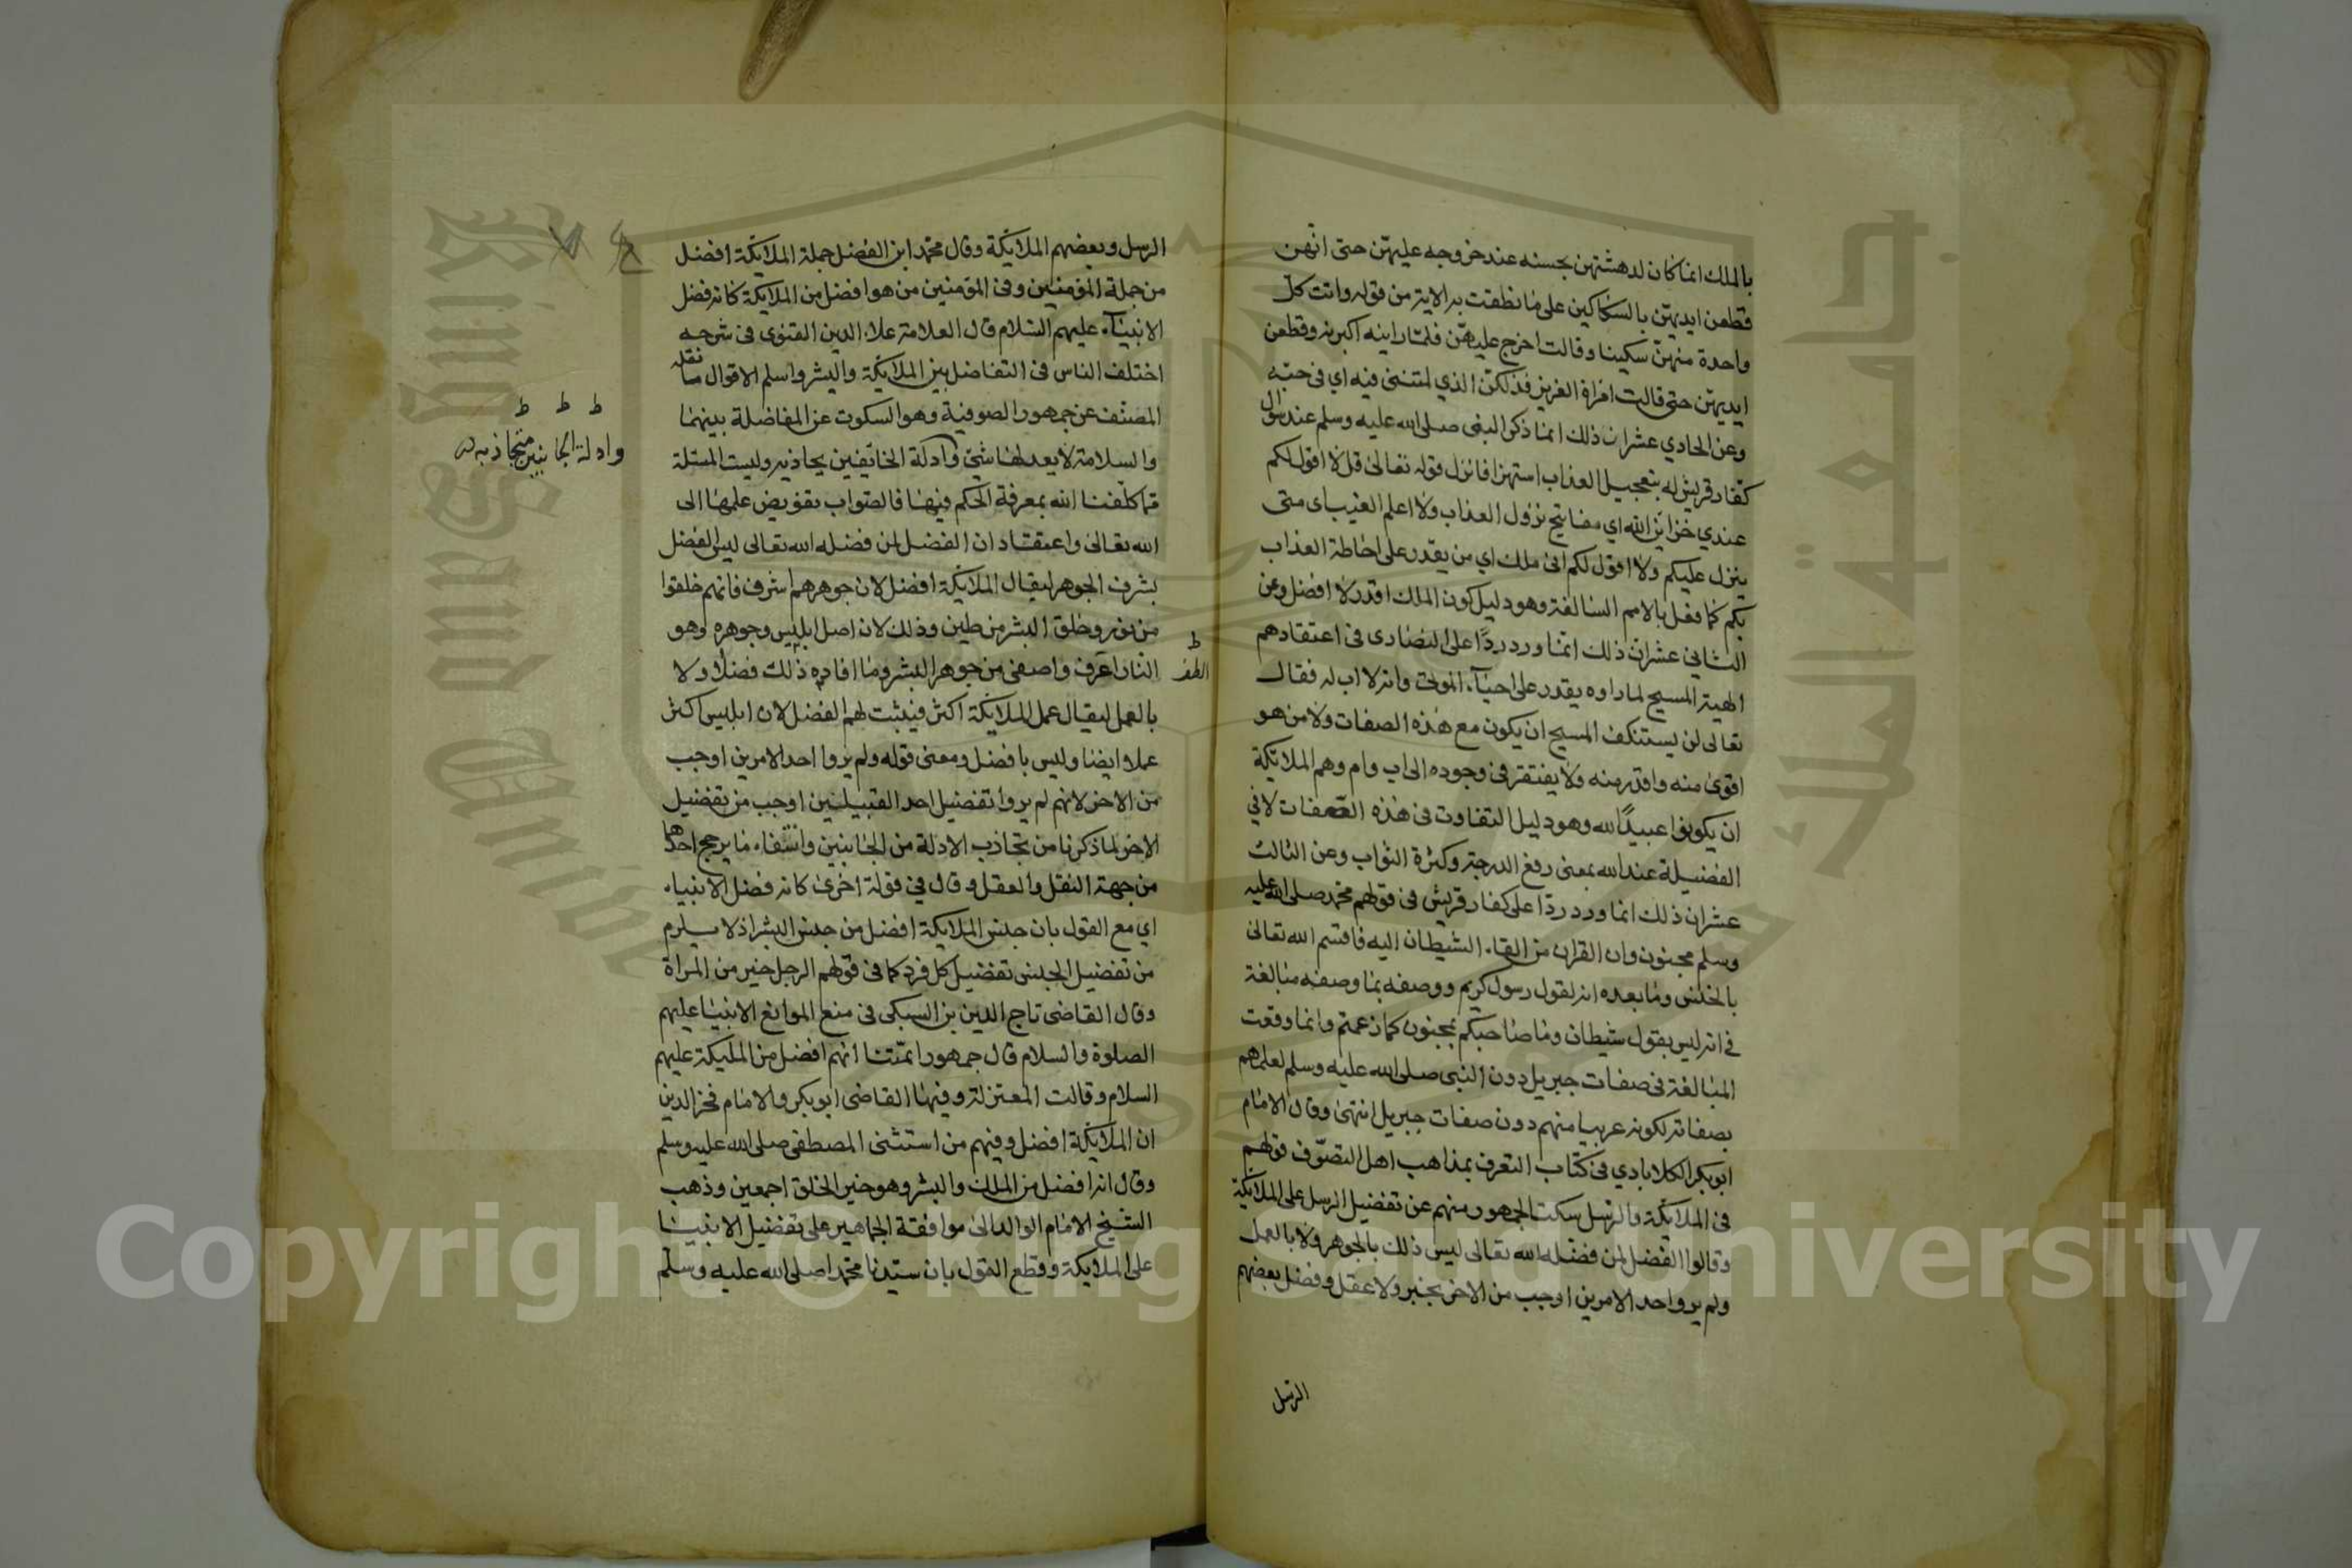 بالملك انما كان لدهشتهن بحسنه عند خروجه عليهن حتى انهن
قطعن ايديهن بالسكاكين على ما نطقت به الاية من قوله واتت كل
واحدة منهن سكينا وقالت اخرج عليهن فلما راينه اكبرنه وقطعن
ايديهن حتى قالت امراة العزيز فذلكن الذي لمتنني فيه اي في حبه
وعن الحادي عشر ان ذلك انما ذكر النبى صلى الله عليه وسلم عند سوال
كفار قريش له بتعجيل العذاب استهزا فانزل قوله تعالى قل لا اقول لكم
عندي خزاين الله اي مفاتيح نزول العذاب ولا اعلم الغيب اى متى
ينزل عليكم ولا اقول لكم انى ملك اي من يقدر على احاطة العذاب
بكم كما فعل بالامم السالفة وهو دليل كون الملك اقدر لا افضل وعن
الثانى عشر ان ذلك انما ورد ردا على النصارى فى اعتقادهم
الهية المسيح لما راوه يقدر على احياء الموتى وانه لا اب له فقال
تعالى لن يستنكف المسيح ان يكون مع هذه الصفات ولا من هو
اقوى منه واقدر منه ولا يفتقر فى وجوده الى اب وام وهم الملائكة
ان يكونوا عبيدا لله وهو دليل التفاوت فى هذه الصفات لا في
الفضيلة عند الله بمعنى رفع الدرجة وكثرة الثواب وعن الثالث
عشر ان ذلك انما ورد ردا على كفار قريش فى قولهم محمد صلى الله عليه
وسلم مجنون وان القران من القاء الشيطان اليه فاقسم الله تعالى
بالخنس وما بعده انه لقول رسول كريم ووصفه بما وصفه مبالغة
في انه ليس بقول شيطان وما صاحبكم بمجنون كما زعمتم وانما وقعت
المبالغة فى صفات جبريل دون النبى صلى الله عليه وسلم لعلمهم
بصفاته لكونه عربيا منهم دون صفات جبريل انتهى وقال الامام
ابو بكر الكلابادي فى كتاب التعرف بمذاهب اهل التصوف قولهم
فى الملائكة والرسل سكت الجمهور منهم عن تفضيل الرسل على الملائكة
وقالوا الفضل لمن فضله الله تعالى ليس ذلك بالجوهر ولا بالعمل
ولم يروا احد الامرين اوجب من الاخر بخبر ولا عقل وفضل بعضهم
الرسل
الرسل وبعضهم الملائكة وقال محمد ابن الفضل جملة الملائكة افضل
من جملة المؤمنين وفى المؤمنين من هو افضل من الملايكة كانه فضل
الانبياء عليهم السلام قال العلامة علاء الدين القنوى فى شرحه
اختلف الناس فى التفاضل بين الملائكة والبشر واسلم الاقوال ما نقله
المصنف عن جمهور الصوفية وهو السكوت عن المفاضلة بينهما
والسلامة لا يعدلها شئ وادلة الخائفين يجاذبه وليست المسئلة
مما كلفنا الله بمعرفة الحكم فيها فالصواب تفويض علمها الى
الله تعالى واعتقاد ان الفضل لمن فضله الله تعالى ليس الفضل
بشرف الجوهر ليقال الملائكة افضل لان جوهرهم اشرف فانهم خلقوا
من نور وخلق البشر من طين وذلك لان اصل ابليس وجوهره وهو
النار اشرف واصفى من جوهر البشر وما افاده ذلك فضلا ولا
بالعمل ليقال عمل الملائكة اكثر فيثبت لهم الفضل لان ابليس اكثر
عملا وايضا وليس بافضل ومعنى قوله ولم يروا احد الامرين اوجب
من الاخر لانهم لم يروا تفضيل احد القبيلين اوجب من تفضيل
الاخر لما ذكرنا من تجاذب الادلة من الجانبين وانتفاء ما يرجح احدهما
من جهة النقل والعقل وقال في قولة اخرى كانه فضل الانبياء
اي مع القول بان جنس الملائكة افضل من جنس البشر اذ لا يلزم
من تفضيل الجنس تفضيل كل فرد كما فى قولهم الرجل خير من المراة
وقال القاضى تاج الدين بن السبكى فى منع الموانع الانبيا عليهم
الصلوة والسلام قال جمهور ائمتنا انهم افضل من المليكة عليهم
السلام وقالت المعتزلة وفيها القاضى ابو بكر والامام فخر الدين
ان الملائكة افضل وفيهم من استثنى المصطفى صلى الله عليه وسلم
وقال انه افضل من الملك والبشر وهو خير الخلق اجمعين وذهب
الشيخ الامام الوالد الى موافقة الجماهير على تفضيل الانبيا
على الملايكة وقطع القول بان سيدنا محمدا صلى الله عليه وسلم
ط ط ط
وادلة الجانبين متجاذبه
ط
Copyright © King Saud University
جامعة الملك سعود
King Saud University